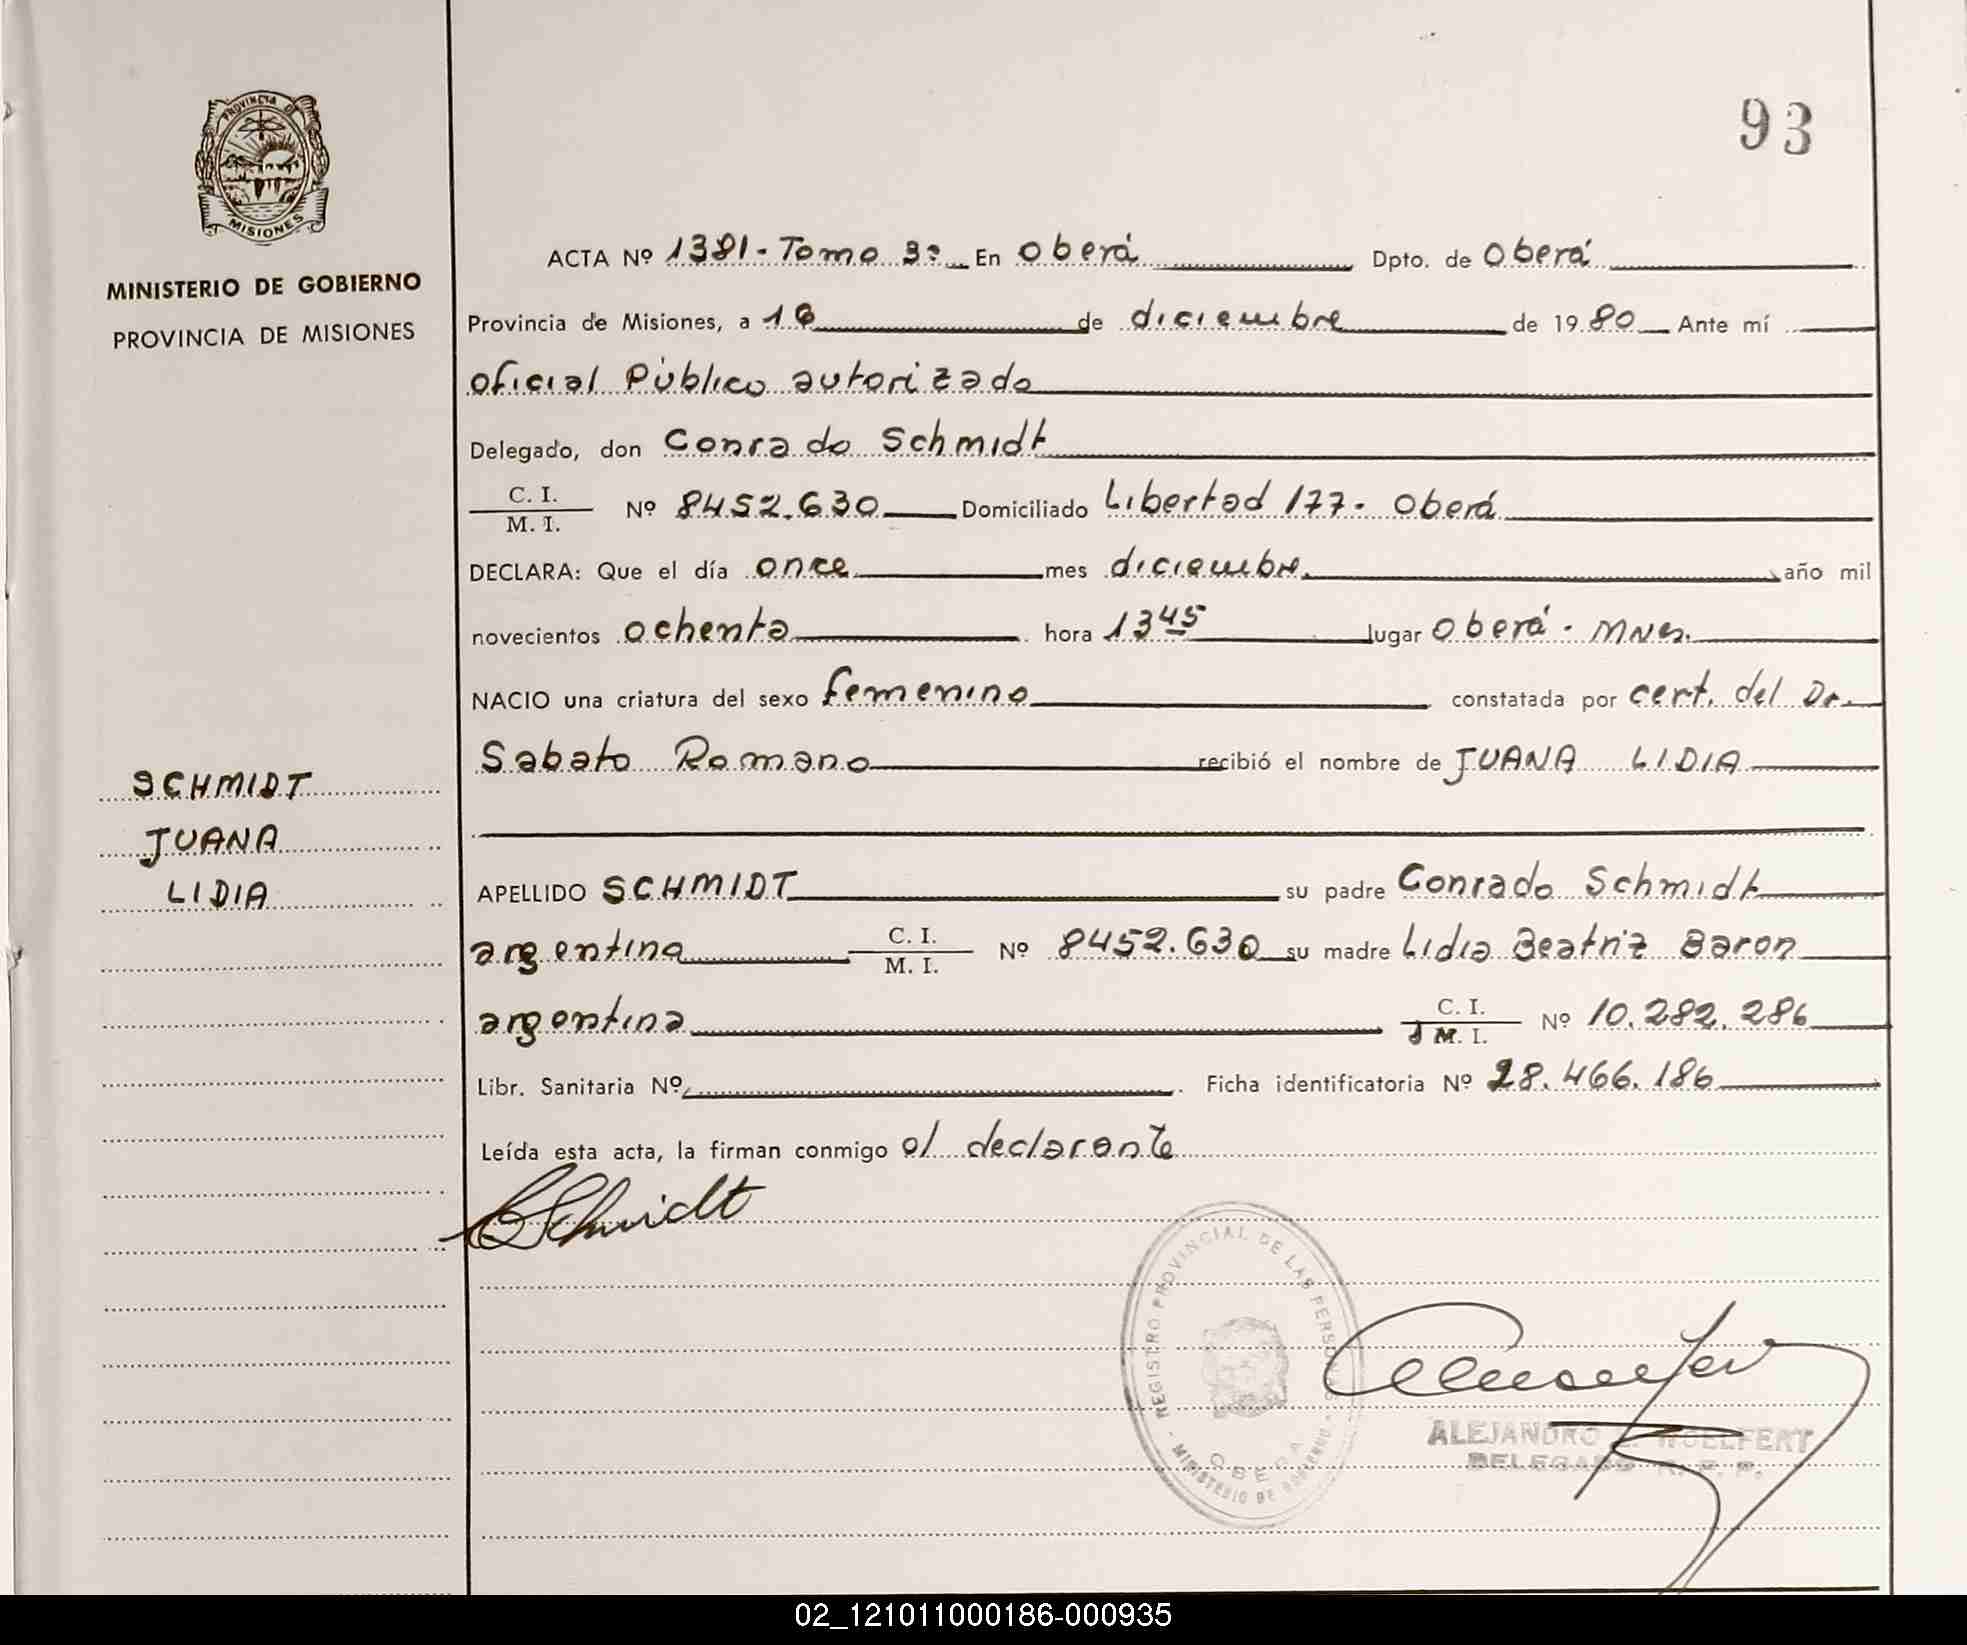 93
PROVINCIA DE
MISIONES
MINISTERIO DE GOBIERNO
PROVINCIA DE MISIONES
ACTA Nº 1381 - Tomo 3º En Oberá Dpto. de Oberá
Provincia de Misiones, a 16 de diciembre de 1980 Ante mí
oficial Público autorizado
Delegado, don Conrado Schmidt
C. I.
M. I. Nº 8452.630 Domiciliado Libertad 177 - Oberá
DECLARA: Que el día once mes diciembre año mil
novecientos ochenta hora 13 45 lugar Oberá - Mnes.
NACIO una criatura del sexo femenino constatada por cert. del Dr.
Sabato Romano recibió el nombre de JUANA LIDIA
SCHMIDT
JUANA
LIDIA
APELLIDO SCHMIDT su padre Conrado Schmidt
argentina C. I. Nº 8452.630 su madre Lidia Beatriz Baron
M. I.
argentina C. I. Nº 10.282.286
M. I.
Libr. Sanitaria Nº Ficha identificatoria Nº 28.466.186
Leída esta acta, la firman conmigo el declarante
CSchmidt
REGISTRO PROVINCIAL DE LAS PERSONAS
OBERA
- MINISTERIO DE GOBIERNO -
ALEJANDRO WOELFERT
DELEGADO R. P. P.
02_121011000186-000935